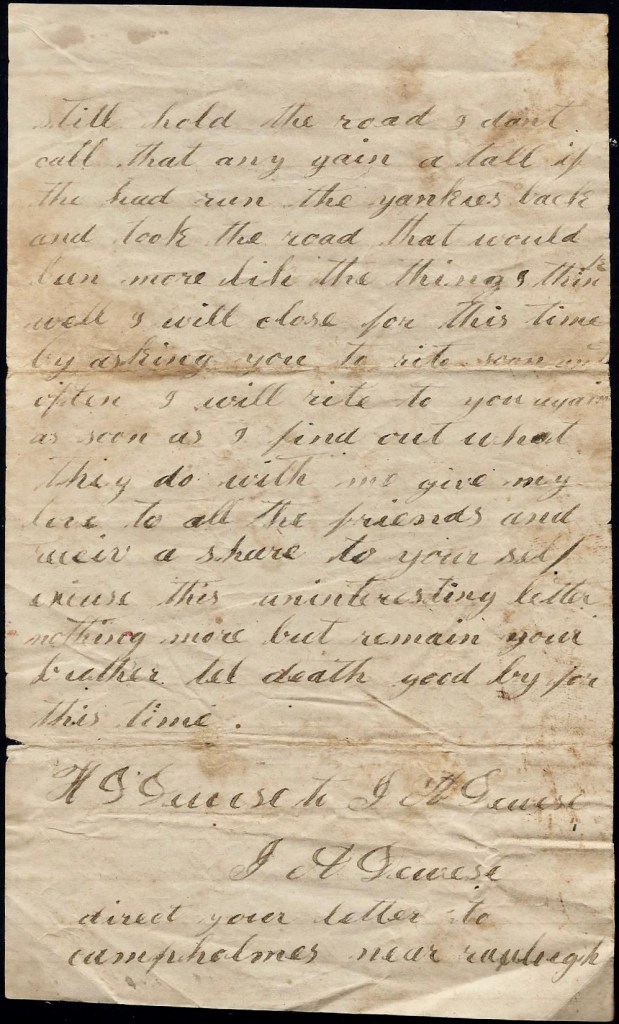 still hold the road I dont
call that any gain a tall if
the had run the yankies back
and took the road that would
bun more like the thing I think
well I will close for this time
by asking you to rite soon and
often I will rite to you again
as soon as I find out what
they do with me give my
love to all the friends and
receiv a share to your self
excuse this uninteresting letter
nothing more but remain your
brother tel death good by for
this time .
H D Dewese to J A Dewese
J A Dewese
direct your letter to
campholmes near